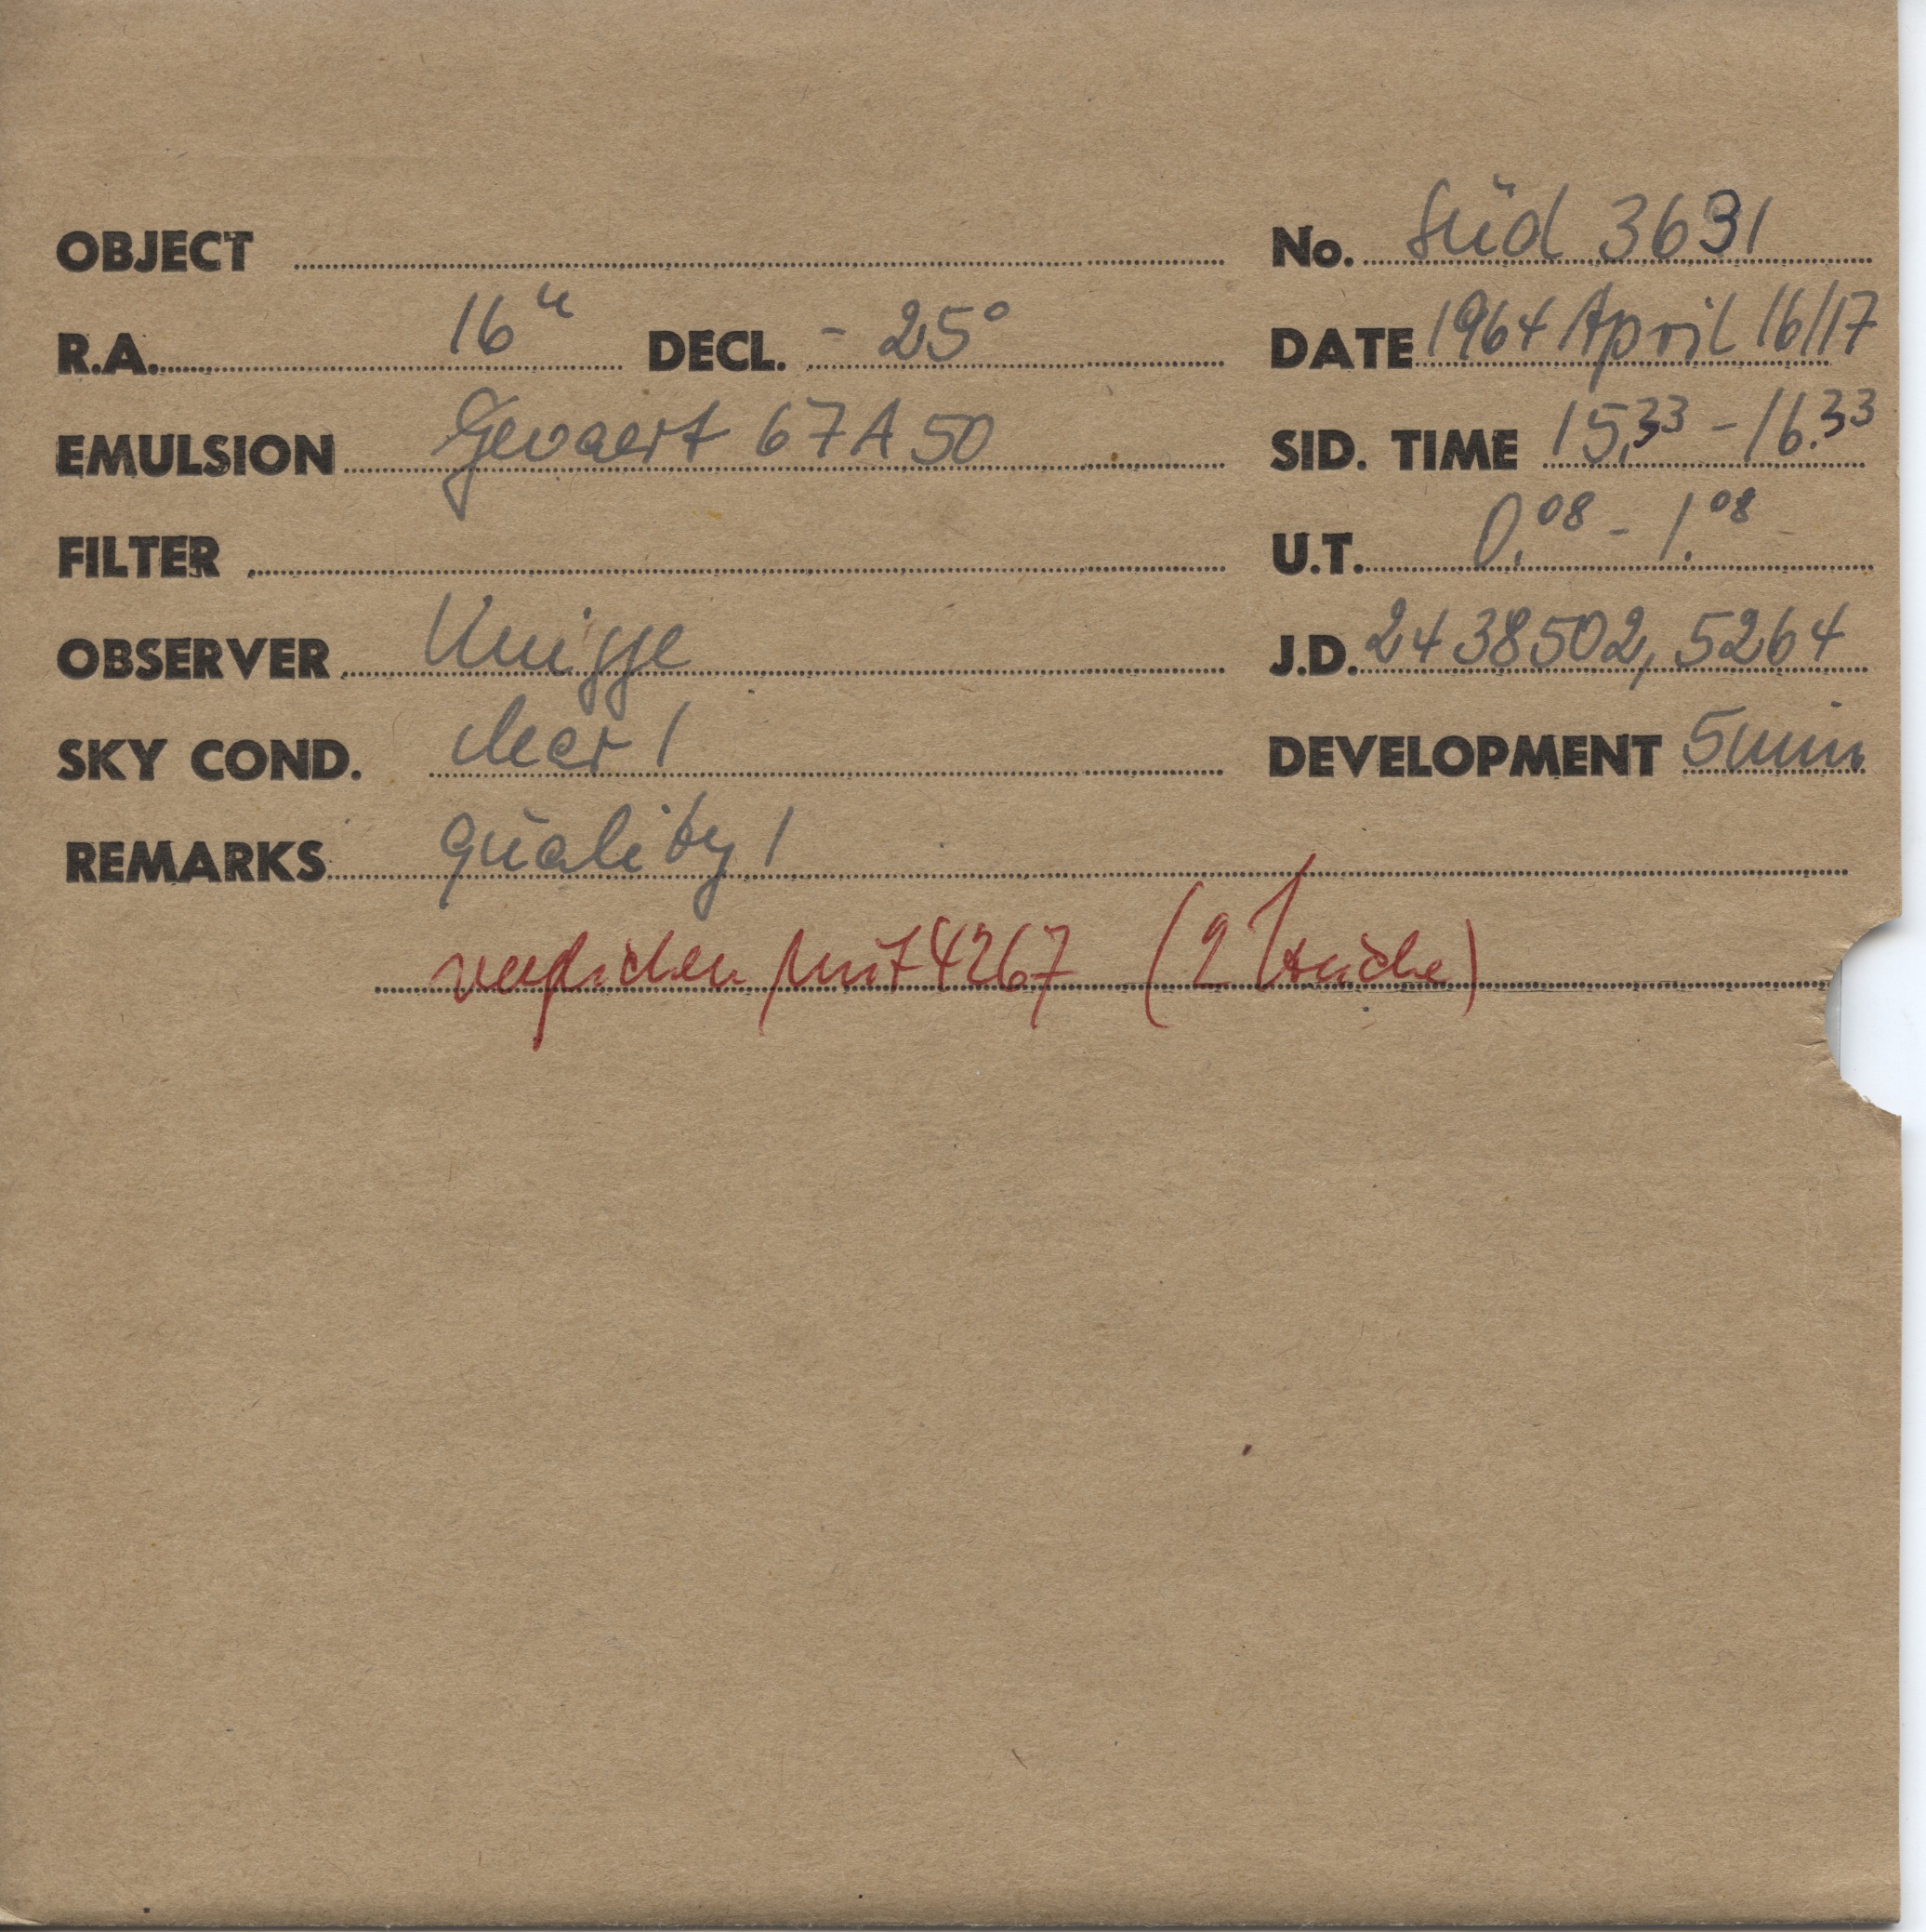 OBJECT No. Süd 3691
R.A. 16ʰ DECL. - 25° DATE 1964 April 16/17
EMULSION Gevaert 67A50 SID. TIME 15.33 - 16.33
FILTER U.T. 0.08 - 1.08
OBSERVER Knigge J.D. 2438502,5264
SKY COND. clear 1 DEVELOPMENT 5min
REMARKS quality 1
verglichen mit 4267 (2 Striche)